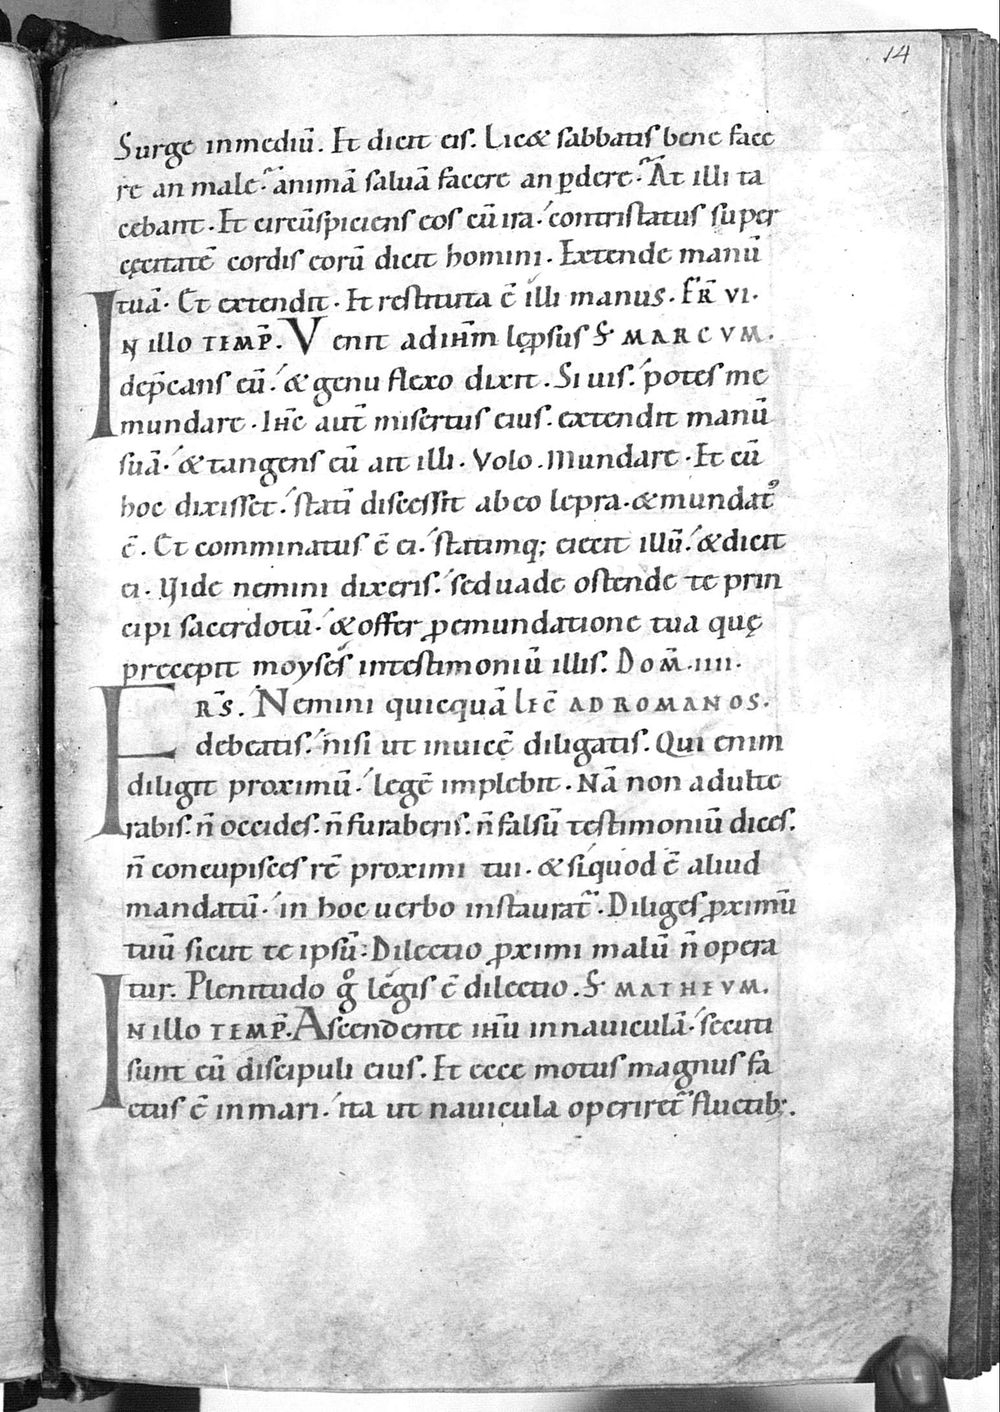 14
Surge inmediū. Et dicit eis. Lic& sabbatis bene face
re an male. animā saluā facere an ꝑdere. At illi ta
cebant. Et circūspiciens eos cū ira. contristatus super
cęcitatē cordis eorū dicit homini. Extende manū
tuā. Et extendit. Et restituta ē illi manus. FR̄ VI.
IN illo TEMP̄. Venit ad iħm lęp̄sus S̄ MARCVM.
dep̄cans eū. & genu flexo dixit. Si uis. potes me
mundare. Iħc aut̄ misertus eius. extendit manū
suā. & tangens eū ait illi. Volo. Mundare. Et cū
hoc dixisset. statī discessit ab eo lepra. & mundatꝰ
ē. Et comminatus ē ei. statimq; eiecit illū. & dicit
ei. Vide nemini dixeris. sed uade ostende te prin
cipi sacerdotū. & offer ꝓ emundatione tua quę
precepit moyses intestimoniū illis. DOM̄. IIII.
FRS̄. Nemini quicquā LEC̄ AD ROMANOS.
debeatis. nisi ut inuicē diligatis. Qui enim
diligit proximū. legē implebit. Nā non adulte
rabis. n̄ occides. n̄ furaberis. n̄ falsū testimoniū dices.
n̄ concupisces rē proximi tui. & siquod ē aliud
mandatū. in hoc uerbo instaurat̄. Diliges ꝓximū
tuū sicut te ipsū. Dilectio ꝓximi malū n̄ opera
tur. Plenitudo gͦ legis ē dilectio. S̄ MATHEVM.
IN illo TEMP̄. Ascendente iħu innauiculā. secuti
sunt eū discipuli eius. Et ecce motus magnus fa
ctus ē inmari. ita ut nauicula operiret̄ fluctib;.